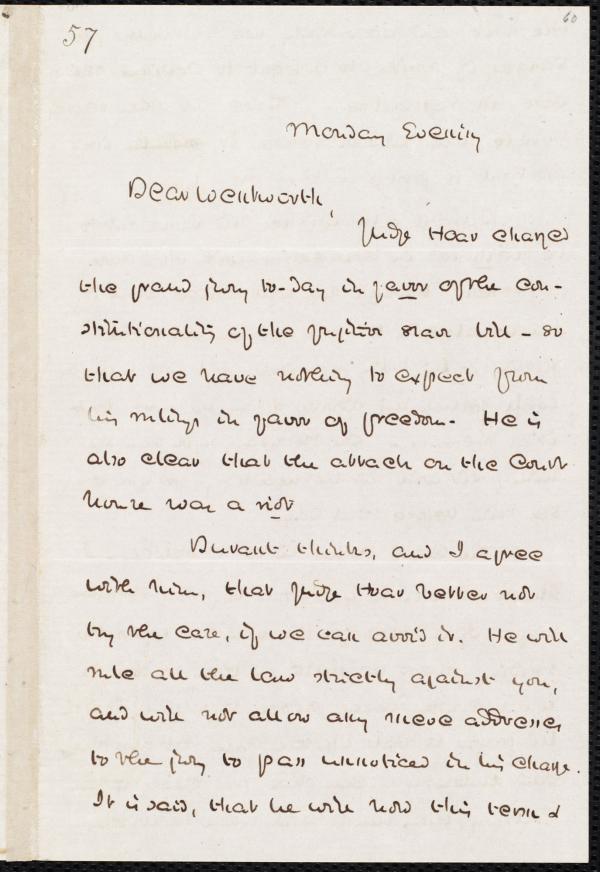 57
60
Monday Evening
Dear Wentworth,
Judge Hoar charged
the grand jury to-day in favor of the con-
stitutionality of the fugitive slave bill - so
that we have nothing to expect from
his rulings in favor of freedom. He is
also clear that the attack on the Court
house was a riot
Durant thinks, and I agree
with him, that Judge Hoar better not
try the case, if we can avoid it. He will
rule all the law strictly against you,
and will not allow any mere addresses
to the jury to pass unnoticed in his charge.
It is said, that he will hold this term &